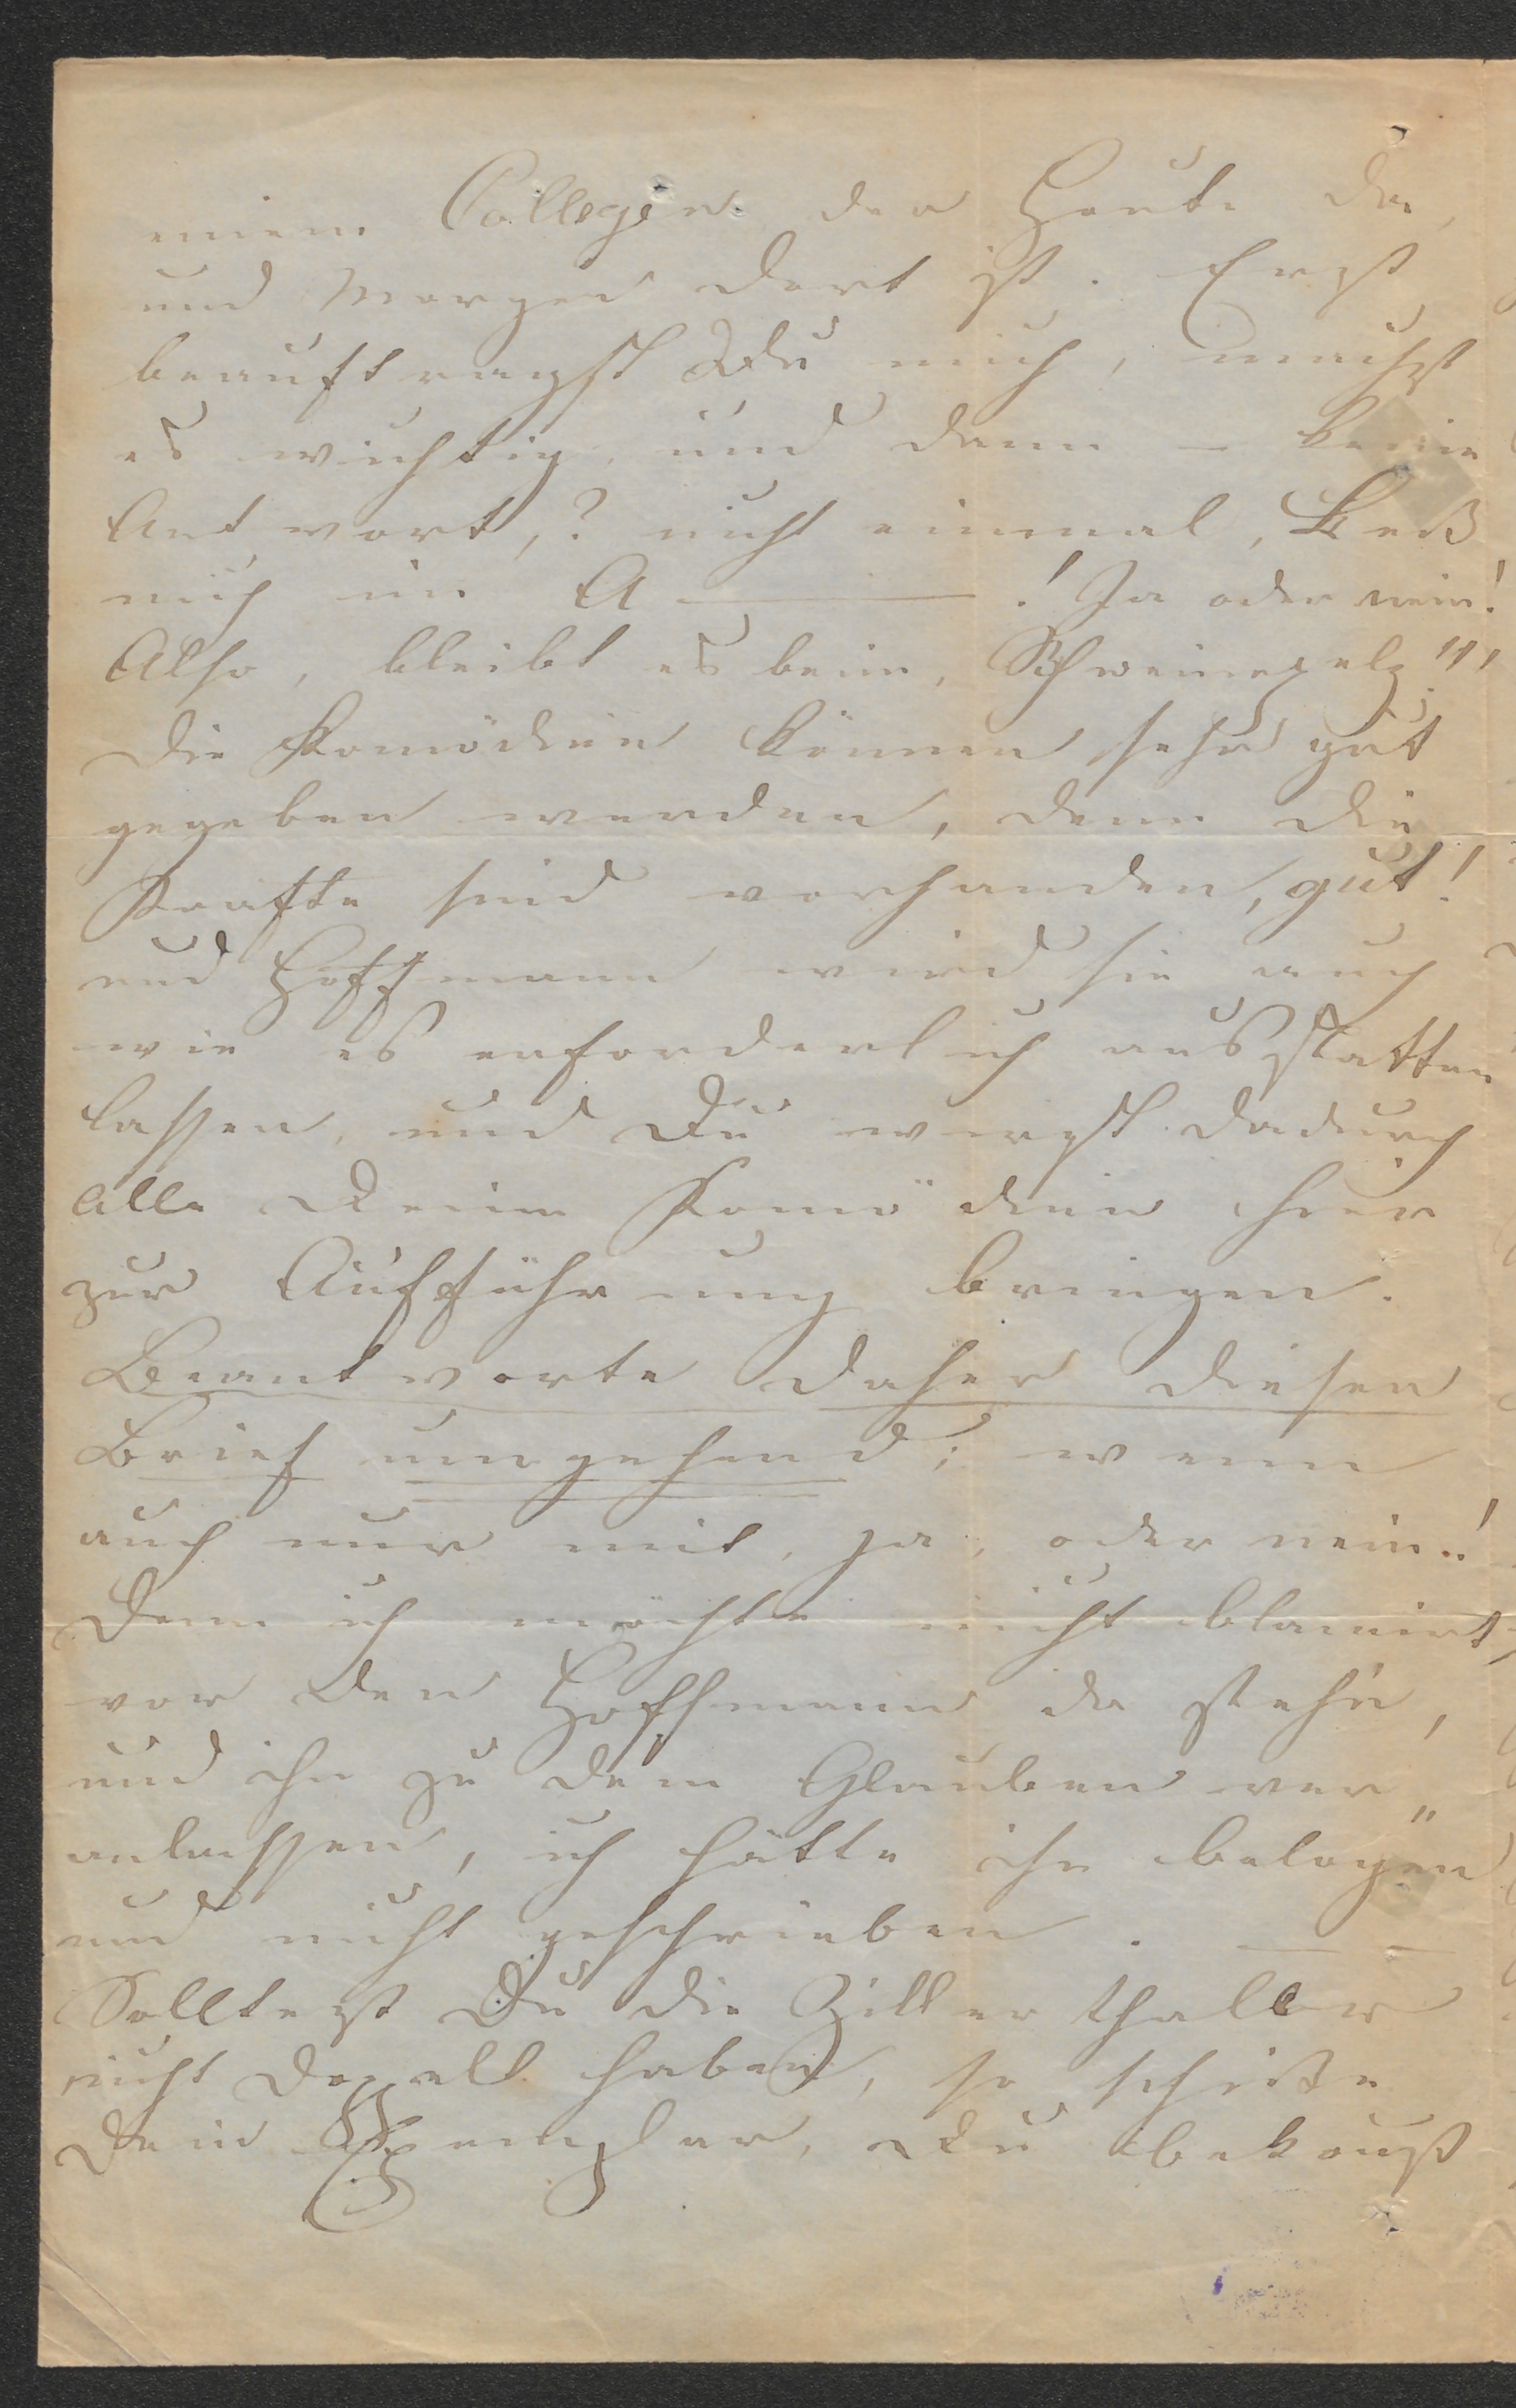 einem Collegen der Heute da,
und Morgen dort ist. Erst
beauftragst Du mich, machst
es wichtig, und dann – keine
Antwort,? nicht einmal, Leß
mich im A———! Ja oder nein!
Also, bleibt es beim, Schweinepelz!"
Die Komödien können sehr gut
gegeben werden, denn die
Krafte sind vorhanden, gut!
und Hoffmann wird sie auch
wie es erforderlich ausstatten
lassen, und Du wirst dadurch
Alle Deine Komödien hier
zur Aufführung bringen.
Beantworte daher diesen
Brief umgehend; wenn
auch nur mit, ja, oder nein!
Denn ich möchte nicht blamirt,
vor den Hoffmann da stehn,
und ihn zu dem Glauben ver„
anlassen, ich hätte ihn belogen
und nicht geschrieben. — —
Solltest Du die Zillerthaller
nicht Doppelt haben, so schicke
Dein Exemplar, Du bekomst